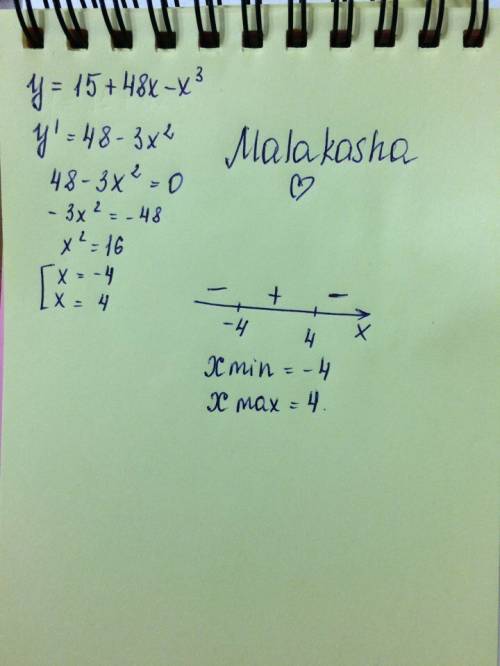 y = 15 + 48x - x³
y' = 48 - 3x²
48 - 3x² = 0
- 3x² = - 48
x² = 16
[ x = -4
x = 4
Malakasha
♡
− + −
-4 4 x
x min = - 4
x max = 4.